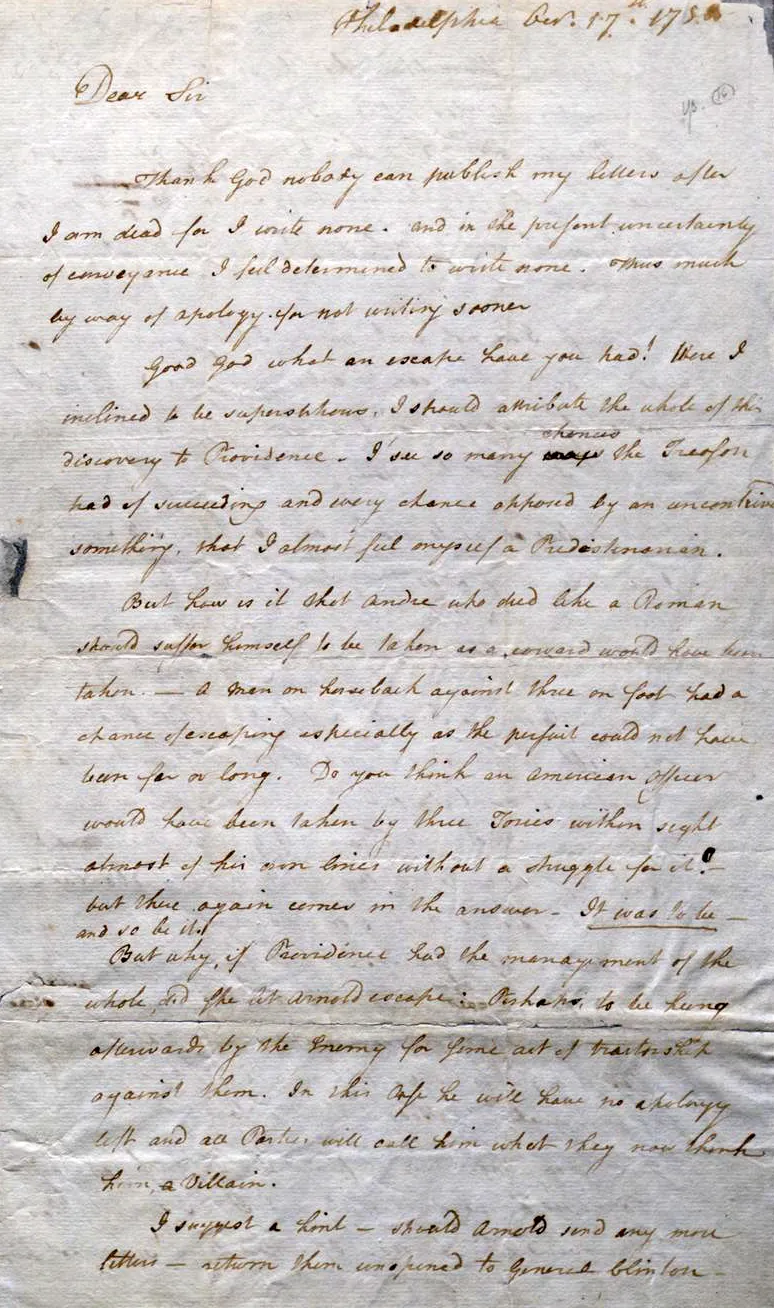 Philadelphia Oct. 17.th 1780
Dear Sir
Thank God nobody can publish my letters after
I am dead for I write none. and in the present uncertainty
of conveyance I feel determined to write none. Thus much
by way of apology for not writing sooner
Good God what an escape have you had! Were I
inclined to be superstitious, I should attribute the whole of this
discovery to Providence. I see so many chances the Treason
had of succeeding and every chance opposed by an uncontriv
something, that I almost feel myself a Predestinarian.
But how is it that Andre who died like a Roman
should suffer himself to be taken as a coward would have been
taken. — A Man on horseback against three on foot had a
chance of escaping especially as the persuit could not have
been far or long. Do you think an American Officer
would have been taken by three Tories within sight
almost of his own lines without a struggle for it? —
but there again comes in the answer — It was to be —
and so be it.
But why, if Providence had the management of the
whole, did she let Arnold escape: Perhaps, to be hung
afterwards by the Enemy for some act of traitorship
against them. In this case he will have no apology
left and all Parties will call him what they now think
him, a Villain.
I suggest a hint — should Arnold send any more
letters — return them unopened to General Clinton —